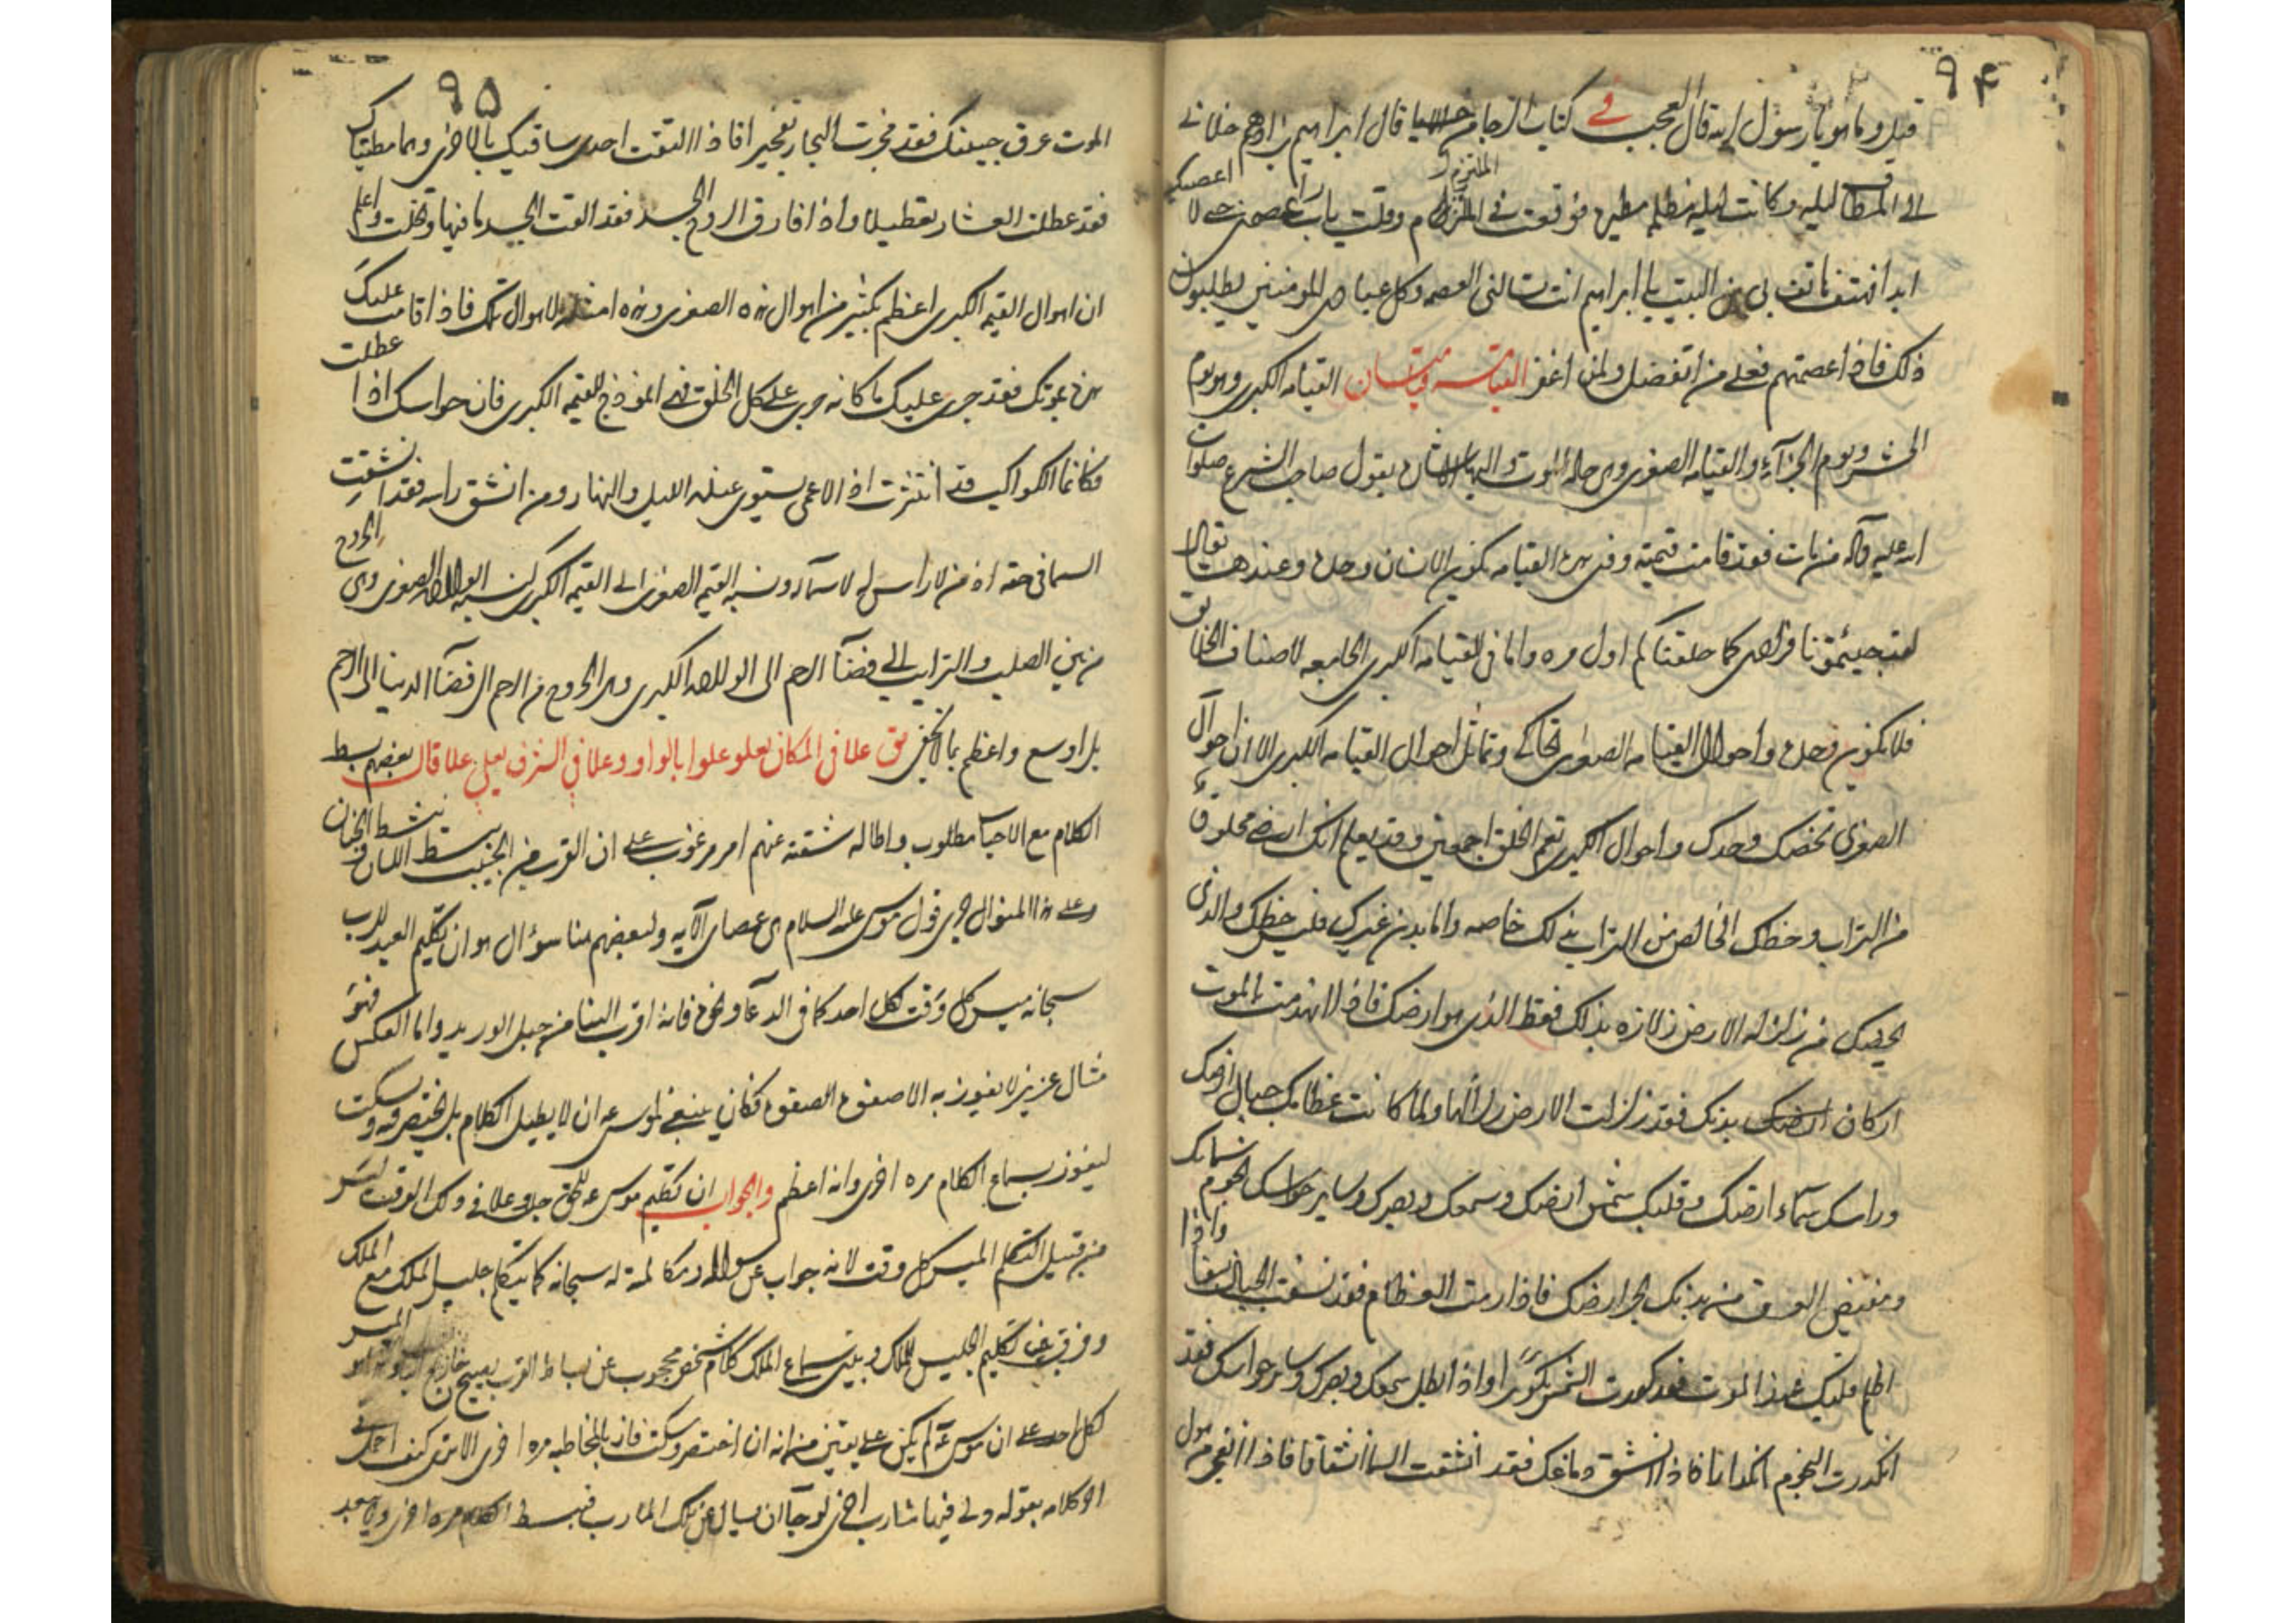 ٩٤
قيل وما هو يا رسول الله قال العجب في كتاب الرجا من الاحيا قال ابراهيم بن ادهم خلا لي
الملتزم
اعصيك
المطاف ليلة وكانت ليلة مظلمة مطيرة فوقفت في الملتزم وقلت يا رب اعصمني حتى لا
ابدا فهتف هاتف بي من البيت يا ابراهيم انت تسالني العصمة وكل عبادي المؤمنين يطلبون
ذلك فاذا عصمتهم فعلى من اتفضل ولمن اغفر القيامة قيامتان القيامة الكبرى وهو يوم
الحشر ويوم الجزاء والقيامة الصغرى وهي حالة الموت واليها الاشارة بقول صاحب الشرع صلوات
الله عليه وآله من مات فقد قامت قيمته وفي هذه القيامة يكون الانسان وحده وعندها يقال
لقد جئتمونا فرادى كما خلقناكم اول مره واما في القيامة الكبرى الجامعه لاصناف الخلايق
فلا يكون وحده واحوال القيامه الصغرى تحاكي وتماثل احوال القيامه الكبرى الا ان احوال
الصغرى تخصك وحدك واحوال الكبرى تعم الخلق اجمعين وقد يعلم انك ارضي مخلوق
من التراب وحظك الخالص من التراب بدنك خاصه واما بدن غيرك فليس حظك والذي
يخصك من زلزلة الارض زلزلة بدنك فقط الذي هو ارضك فاذا انهدمت بالموت
اركان بدنك فقد زلزلت الارض زلزالها ولما كانت عظامك جبال ارضك
وراسك سماء ارضك وقلبك شمس ارضك وسمعك وبصرك وساير حواسك نجوم سمائك
ومفيض العرق من بدنك بحر ارضك فاذا رمت العظام فقد نسفت الجبال نسفا واذا
اظلم قلبك عند الموت فقد كورت الشمس تكويرا واذا بطل سمعك وبصرك وساير حواسك فقد
انكدرت النجوم انكدارا فاذا انشق دماغك فقد انشقت السما انشقاقا فاذا انفجر من هول
٩٥
الموت عرق جبينك فقد فجرت البحار تفجيرا فاذا التفت احدى ساقيك بالاخرى وهما مطيتاك
فقد عطلت العشار تعطيلا واذا فارق الروح الجسد فقد القت الارض ما فيها وتخلت واعلم
ان اهوال القيمه الكبرى اعظم بكثير من اهوال هذه الصغرى وهذه امثلة لاهوال تلك فاذا قامت عليك
هذه بموتك فقد جرى عليك ما كانه جرى على كل الخلق فهي انموذج للقيمه الكبرى فان حواسك اذا عطلت
فكانما الكواكب قد انتثرت اذ الاعمى يستوي عنده الليل والنهار ومن انشق راسه فقد انشقت
السما في حقه اذ من لا راس له لا سماء له ونسبة القيمه الصغرى الى القيمه الكبرى كنسبة الولادة الصغرى وهي الخروج
من بين الصلب والترايب الى فضاء الرحم الى الولادة الكبرى وهي الخروج من الرحم الى فضاء الدنيا
بل اوسع واعظم بما لا يخفى يق علا في المكان يعلو علوا بالواو وعلا في الشرف يعلى علا قال بعضهم بسط
الكلام مع الاحباب مطلوب واطالة شقته عنهم امر مرغوب على ان القرب من الحبيب يبسط اللسان وينشط الجنان
وعلى هذا المنوال جرى قول موسى عليه السلام هي عصاي الآيه ولبعضهم هنا سؤال هو ان تكليم العبد للرب
سبحانه ميسر كل وقت لكل احد كما في الدعاء ونحوه فانه اقرب الينا من حبل الوريد واما العكس فهو
منال عزيز لا يفوز به الا صفوة الصفوة فكان ينبغي لموسى ع ان لا يطيل الكلام بل يختصر فيه ويسكت
ليفوز بسماع الكلام مره اخرى وانه اعظم والجواب ان تكليم موسى ع للحق جل وعلا في ذلك الوقت ليس
من قبيل التكلم الميسر كل وقت لانه جواب عن سواله ومكالمة له سبحانه كما يتكلم جليس الملك مع الملك
وفرق بين تكليم الجليس للملك وبين سماع الملك كلام شخص محجوب عن بساط القرب يصيح خارج الباب وهو الميسر
لكل احد على ان موسى ع لم يكن على يقين من انه ان اختصر وسكت فاز بالمخاطبه مره اخرى الا ترى كيف اجمل في
اخر كلامه بقوله ولي فيها مآرب اخرى لرجاء ان يسال عن تلك المآرب فيبسط الكلام مره اخرى ولا يبعد